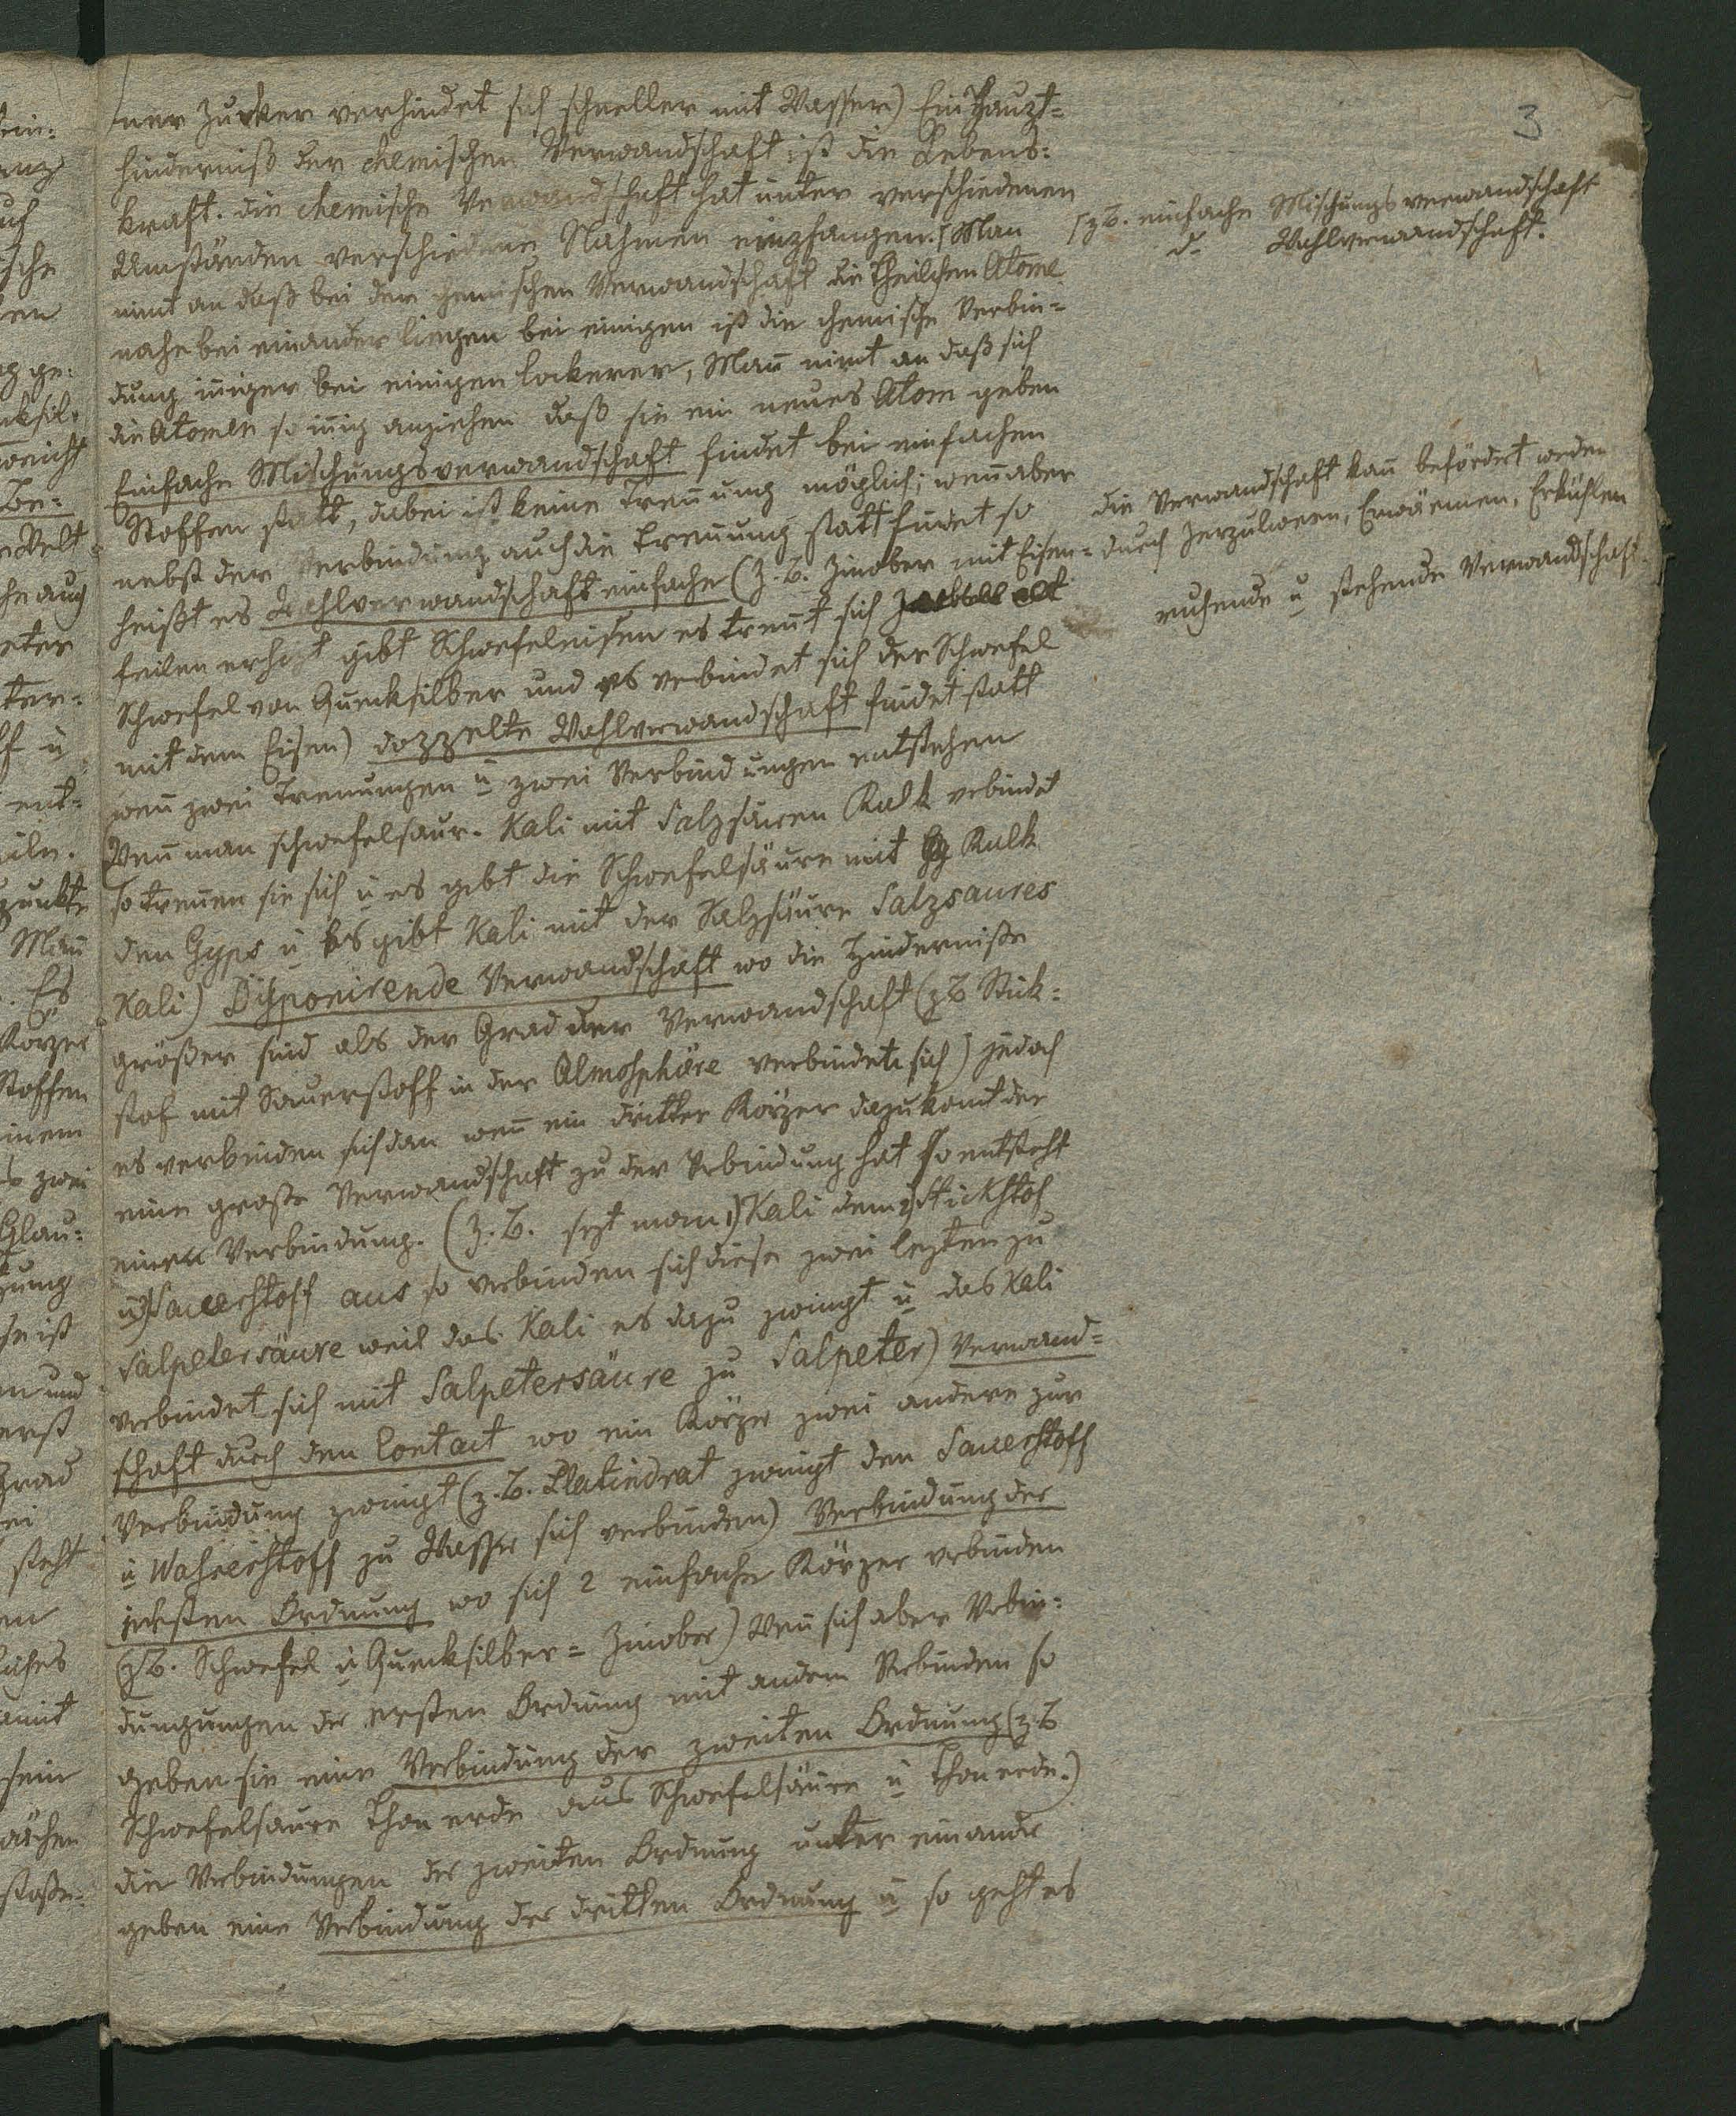 3
ner Zucker verbindet sich schneller mit Wasser) Ein Haupt=
hinderniß der chemischen Verwandschaft ist die Lebens=
kraft. die chemische Verwandschaft hat unter verschiedenen
Umständen verschiedene Nahmen empfangen. Man
nimt an daß bei der chemischen Verwandschaft die Theilchen Atome
nahe bei einander liegen bei einigen ist die chemische Verbin=
dung iniger bei einigen lockerer, Man nimt an daß sich
die Atomen so inig anziehen daß sie ein neues Atom geben
Einfache Mischungsverwandschaft findet bei einfachen
Stoffen statt, dabei ist keine Trenung möglich; wen aber
nebst der Verbindung auch die Trenung statt findet so
heißt es Wahlverwandschaft einfache (z. B. Zinober mit Eisen=
feilen erhizt gibt Schwefeleisen es trent sich
Schwefel von Quecksilber und es verbindet sich der Schwefel
mit dem Eisen) doppelte Wahlverwandschaft findet statt
wen zwei Trenungen u zwei Verbindungen entstehen
Wen man schwefelsaur. Kali mit Salzsauren Kalk verbindet
so trenen sie sich u es gibt die Schwefelsäure mit Kalk
den Gyps u es gibt Kali mit der Salzsäure Salzsaures
Kali) Disponirende Verwandschaft wo die Hinderniße
größer sind als der Grad der Verwandschaft (z B Stick=
stof mit Sauerstoff in der Atmosphäre verbindet sich) jedoch
es verbinden sich dan wen ein dritter Körper dazu komt der
eine große Verwandschaft zu der Verbindung hat so entsteht
eine Verbindung. (Z. B. sezt man 1) Kali dem 2) Stickstof
u 3) Sauerstoff aus so verbinden sich diese zwei lezten zu
Salpetersäure weil das Kali es dazu zwingt u das Kali
verbindet sich mit Salpetersäure zu Salpeter) Verwand=
schaft durch den Contact wo ein Körper zwei andere zur
Verbindung zwingt (z. B. Platindrat zwingt den Sauerstoff
u Wasserstoff zu Wasser sich verbinden) Verbindung der
ersten Ordnung wo sich 2 einfache Körper verbinden
(z B. Schwefel u Quecksilber = Zinober) Wen sich aber Verbin=
dungungen der ersten Ordnung mit andern Verbinden so
geben sie eine Verbindung der zweiten Ordnung (z. B
Schwefelsaure Thonerde aus Schwefelsäure u Thonerde.)
die Verbindungen der zweiten Ordnung unter einander
geben eine Verbindung der dritten Ordnung u so geht es
z B. einfache Mischungsverwandschaft
d. Wahlverwandschaft.
die Verwandschaft kan befördert werden
durch Zerpulvern, Erwärmen, Erkühlen
ruhende u stehende Verwandschaft